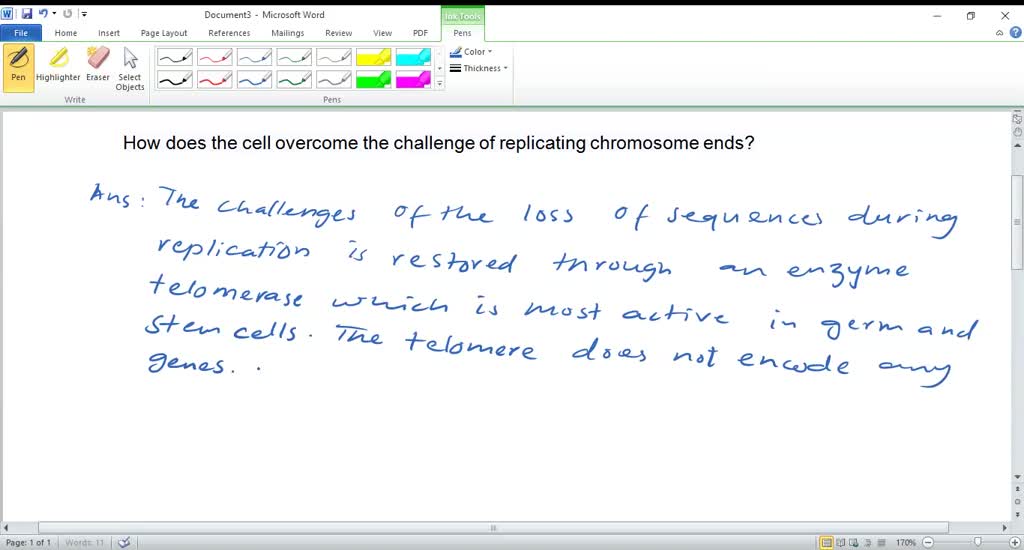 Document3 - Microsoft Word
Ink Tools
File Home Insert Page Layout References Mailings Review View PDF Pens
Pen Highlighter Eraser Select Objects
Color
Thickness
Write Pens
How does the cell overcome the challenge of replicating chromosome ends?
Ans: The challenges of the loss of sequences during
replication is restored through an enzyme
telomerase which is most active in germ and
stem cells. The telomere does not encode any
genes.
Page: 1 of 1 Words: 11 170%